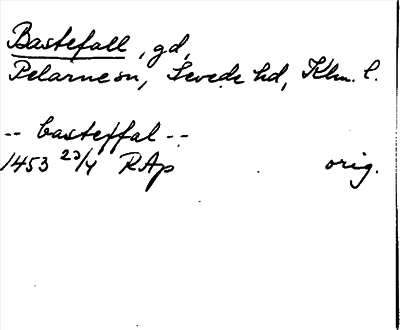 Bastefall, gd,
Pelarne sn, Sevede hd, Klm. l.
-- basteffal --
1453 23/4 RAp orig.